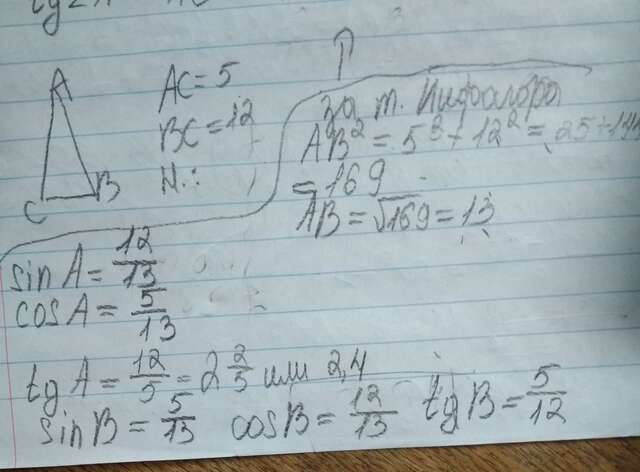 A
C
B
AC=5
BC=12
N.:
за т. Пифагора
AB² = 5³ + 12² = 25+144
= 169
AB = √169 = 13
sin A = 12/13
cos A = 5/13
tg A = 12/5 = 2 2/5 или 2,4
sin B = 5/13 cos B = 12/13 tg B = 5/12